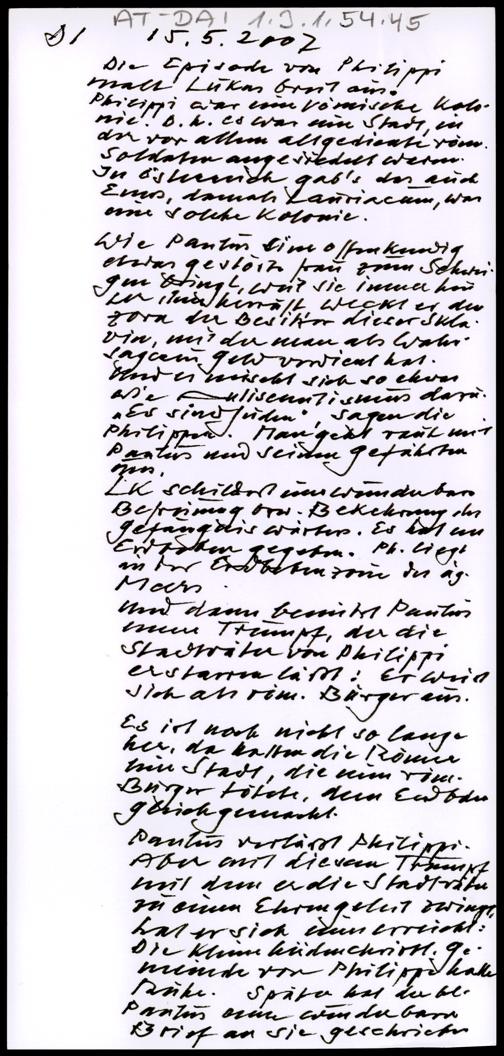 AT-DAI 1.3.1.54.45
DI 15.5.2007
Die Episode von Philippi
malt Lukas breit aus.
Philippi war eine römische Kolo-
nie. D.h. es war eine Stadt, in
der vor allem altgediente röm.
Soldaten angesiedelt waren.
In Österreich gab's das auch
Enns, damals Lauriacum, war
eine solche Kolonie.
Wie Paulus eine offenkundig
etwas gestörte Frau zum Schwei-
gen bringt, weil sie immer hin
ter ihm herruft weckt er den
Zorn der Besitzer dieser Skla-
vin, mit der man als Wahr-
sagerin Geld verdient hat.
Und es mischt sich so etwas
wie Antisemitismus daru.
„Es sind Juden", sagen die
Philipper. Man geht rauh mit
Paulus und seinen Gefährten
um.
LK schildert uns wunderbare
Befreiung bzw. Bekehrung des
Gefängniswärters. Es hat ein
Erdbeben gegeben. Ph. liegt
in der Erdbebenzone des äg.
Meers.
Und dann benützt Paulus
einen Trumpf, der die
Stadträte von Philippi
erstarren läßt: Er weist
sich als röm. Bürger aus.
Es ist noch nicht so lange
her, da hatten die Römer
eine Stadt, die einen röm.
Bürger tötete, dem Erdboden
gleichgemacht.
Paulus verläßt Philippi.
Aber mit diesem Trumpf
mit dem er die Stadträte
zu einem Ehrengeleit zwingt,
hat er sich eines erreicht:
Die kleine heidenchristl. Ge-
meinde von Philippi hatte
Ruhe. Später hat der hl.
Paulus einen wunderbaren
Brief an sie geschrieben